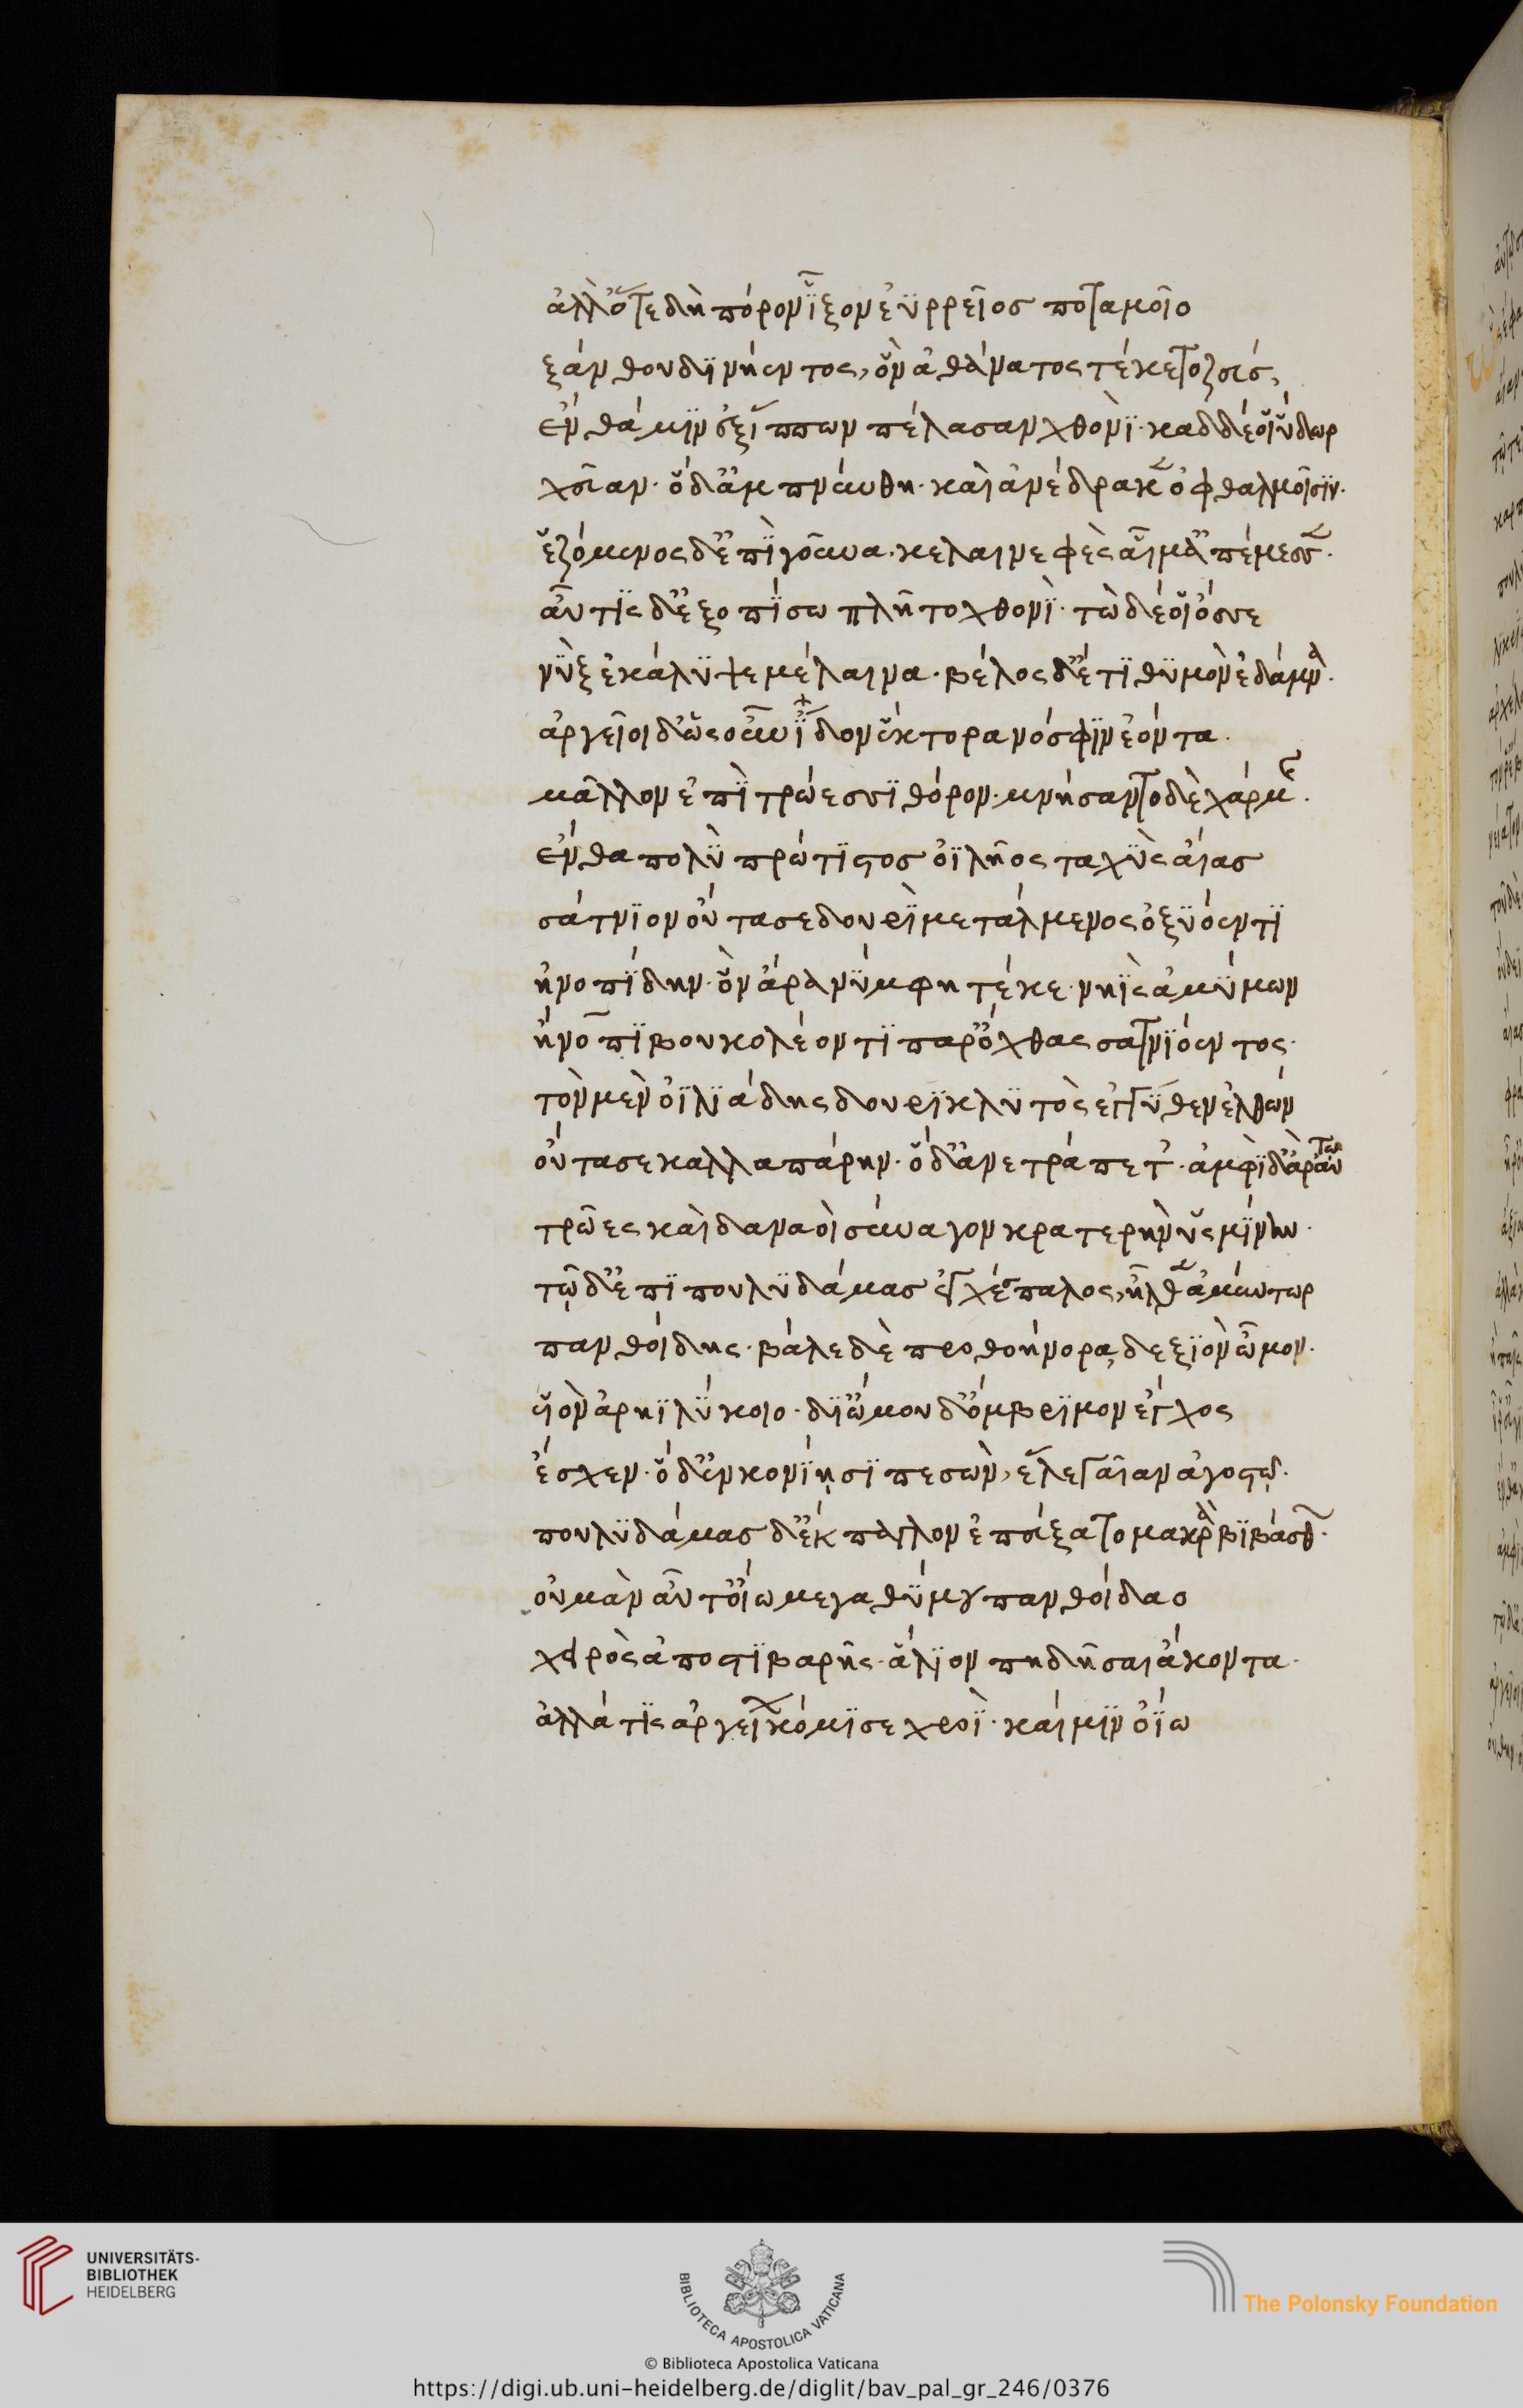 ἀλλ' ὅτε δὴ πόρον ἷξον ἐϋρρεῖος ποταμοῖο
ξάνθου δινήεντος, ὃν ἀθάνατος τέκετο ζεύς,
ἔνθά μιν ἐξ ἵππων πέλασαν χθονί· καδδέ οἱ ὕδωρ
χεῦαν· ὁ δ' ἀμπνύνθη· καὶ ἀνέδρακεν ὀφθαλμοῖσιν·
ἑζόμενος δ' ἐπὶ γοῦνα· κελαινεφὲς αἷμ' ἀπέμεσσεν·
αὖτις δ' ἐξοπίσω πλῆτο χθονί· τὼ δέ οἱ ὄσσε
νὺξ ἐκάλυψε μέλαινα· βέλος δ' ἔτι θυμὸν ἐδάμνα·
ἀργεῖοι δ' ὡς οὖν ἴδον ἕκτορα νόσφιν ἐόντα·
μᾶλλον ἐπὶ τρώεσσι θόρον· μνήσαντο δὲ χάρμης·
ἔνθα πολὺ πρώτιστος ὀϊλῆος ταχὺς αἴας
σάτνιον οὔτασε δουρὶ μετάλμενος ὀξυόεντι
ἠνοπίδην· ὃν ἄρα νύμφη τέκε· νηῒς ἀμύμων
ἤνοπι βουκολέοντι παρ' ὄχθας σατνιόεντος·
τὸν μὲν ὀϊλιάδης δουρικλυτὸς ἐγγύθεν ἐλθών
οὔτασε καλλαπάρην· ὁ δ' ἀνετράπετ'· ἀμφὶ δ' ἄρ' αὐτῶ
τρῶες καὶ δαναοὶ σύναγον κρατερὴν ὑσμίνην·
τῷ δ' ἐπι πουλυδάμας ἐγχέσπαλος, ἦλθεν ἀμύντωρ
πανθοίδης· βάλε δὲ προθοήνορα δεξιὸν ὦμον·
υἱὸν ἀρηϊλύκοιο· δι' ὤμου δ' ὄμβριμον ἔγχος
ἔσχεν· ὁ δ' ἐν κονίῃσι πεσὼν, ἕλε γαῖαν ἀγοστῷ·
πουλυδάμας δ' ἔκπαγλον ἐπεύξατο μακρὰ βιβάσθων·
οὐ μὰν αὖτ' ὀΐω μεγαθύμου πανθοίδαο
χειρὸς ἄπο στιβαρῆς· ἅλιον πηδῆσαι ἄκοντα·
ἀλλά τις ἀργείων κόμισε χροΐ· καί μιν ὀΐω
UNIVERSITÄTS-
BIBLIOTHEK
HEIDELBERG
BIBLIOTECA APOSTOLICA VATICANA
The Polonsky Foundation
© Biblioteca Apostolica Vaticana
https://digi.ub.uni-heidelberg.de/diglit/bav_pal_gr_246/0376